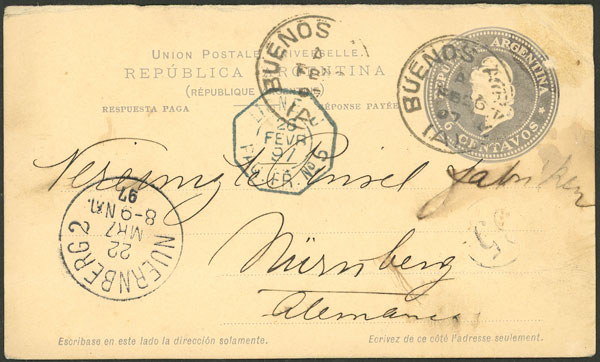 UNION POSTALE UNIVERSELLE.
REPÚBLICA ARGENTINA
(RÉPUBLIQUE ARGENTINE)
RESPUESTA PAGA
RÉPONSE PAYÉE
ARGENTINA
6 CENTAVOS
BUENOS
FE
BUENOS AIRES
FEB 26
97
(A)
LIGNE
26
FEVR
97
PAQ. FR. Nº 5
Vereinigte Pinsel Fabriken
Nürnberg
Alemania
NUERNBERG 2
22
MRZ
8-9 NM.
97
Escribase en este lado la dirección solamente.
Ecrivez de ce côté l'adresse seulement.